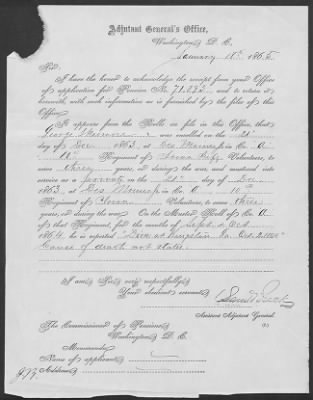 Adjutant General's Office,
Washington, D. C.
January 18th 1865
Sir:
I have the honor to acknowledge the receipt from your Office
of application for Pension No. 71.822, and to return it
herewith, with such information as is furnished by the files of
this Office.
It appears from the Rolls on file in this Office, that
George was enrolled on the 21st
day of Dec 1863, at Des Moines in Co. A
10th Regiment of Iowa Volunteers, to
serve three years, or during the war, and mustered into
service as a private on the 21st day of Dec
1863, at Des Moines, in Co. A 10th
Regiment of Iowa Volunteers, to serve three
years, or during the war. On the Muster Roll of Co. A
of that Regiment, for the months of Sept & Oct
1864, he is reported "Died at Kingston Ga. Oct. 2. 1864"
Cause of death not stated.
I am, Sir, very respectfully,
Your obedient servant,
Assistant Adjutant General.
The Commissioner of Pensions,
Washington, D. C.
Memoranda:
Name of applicant
Address